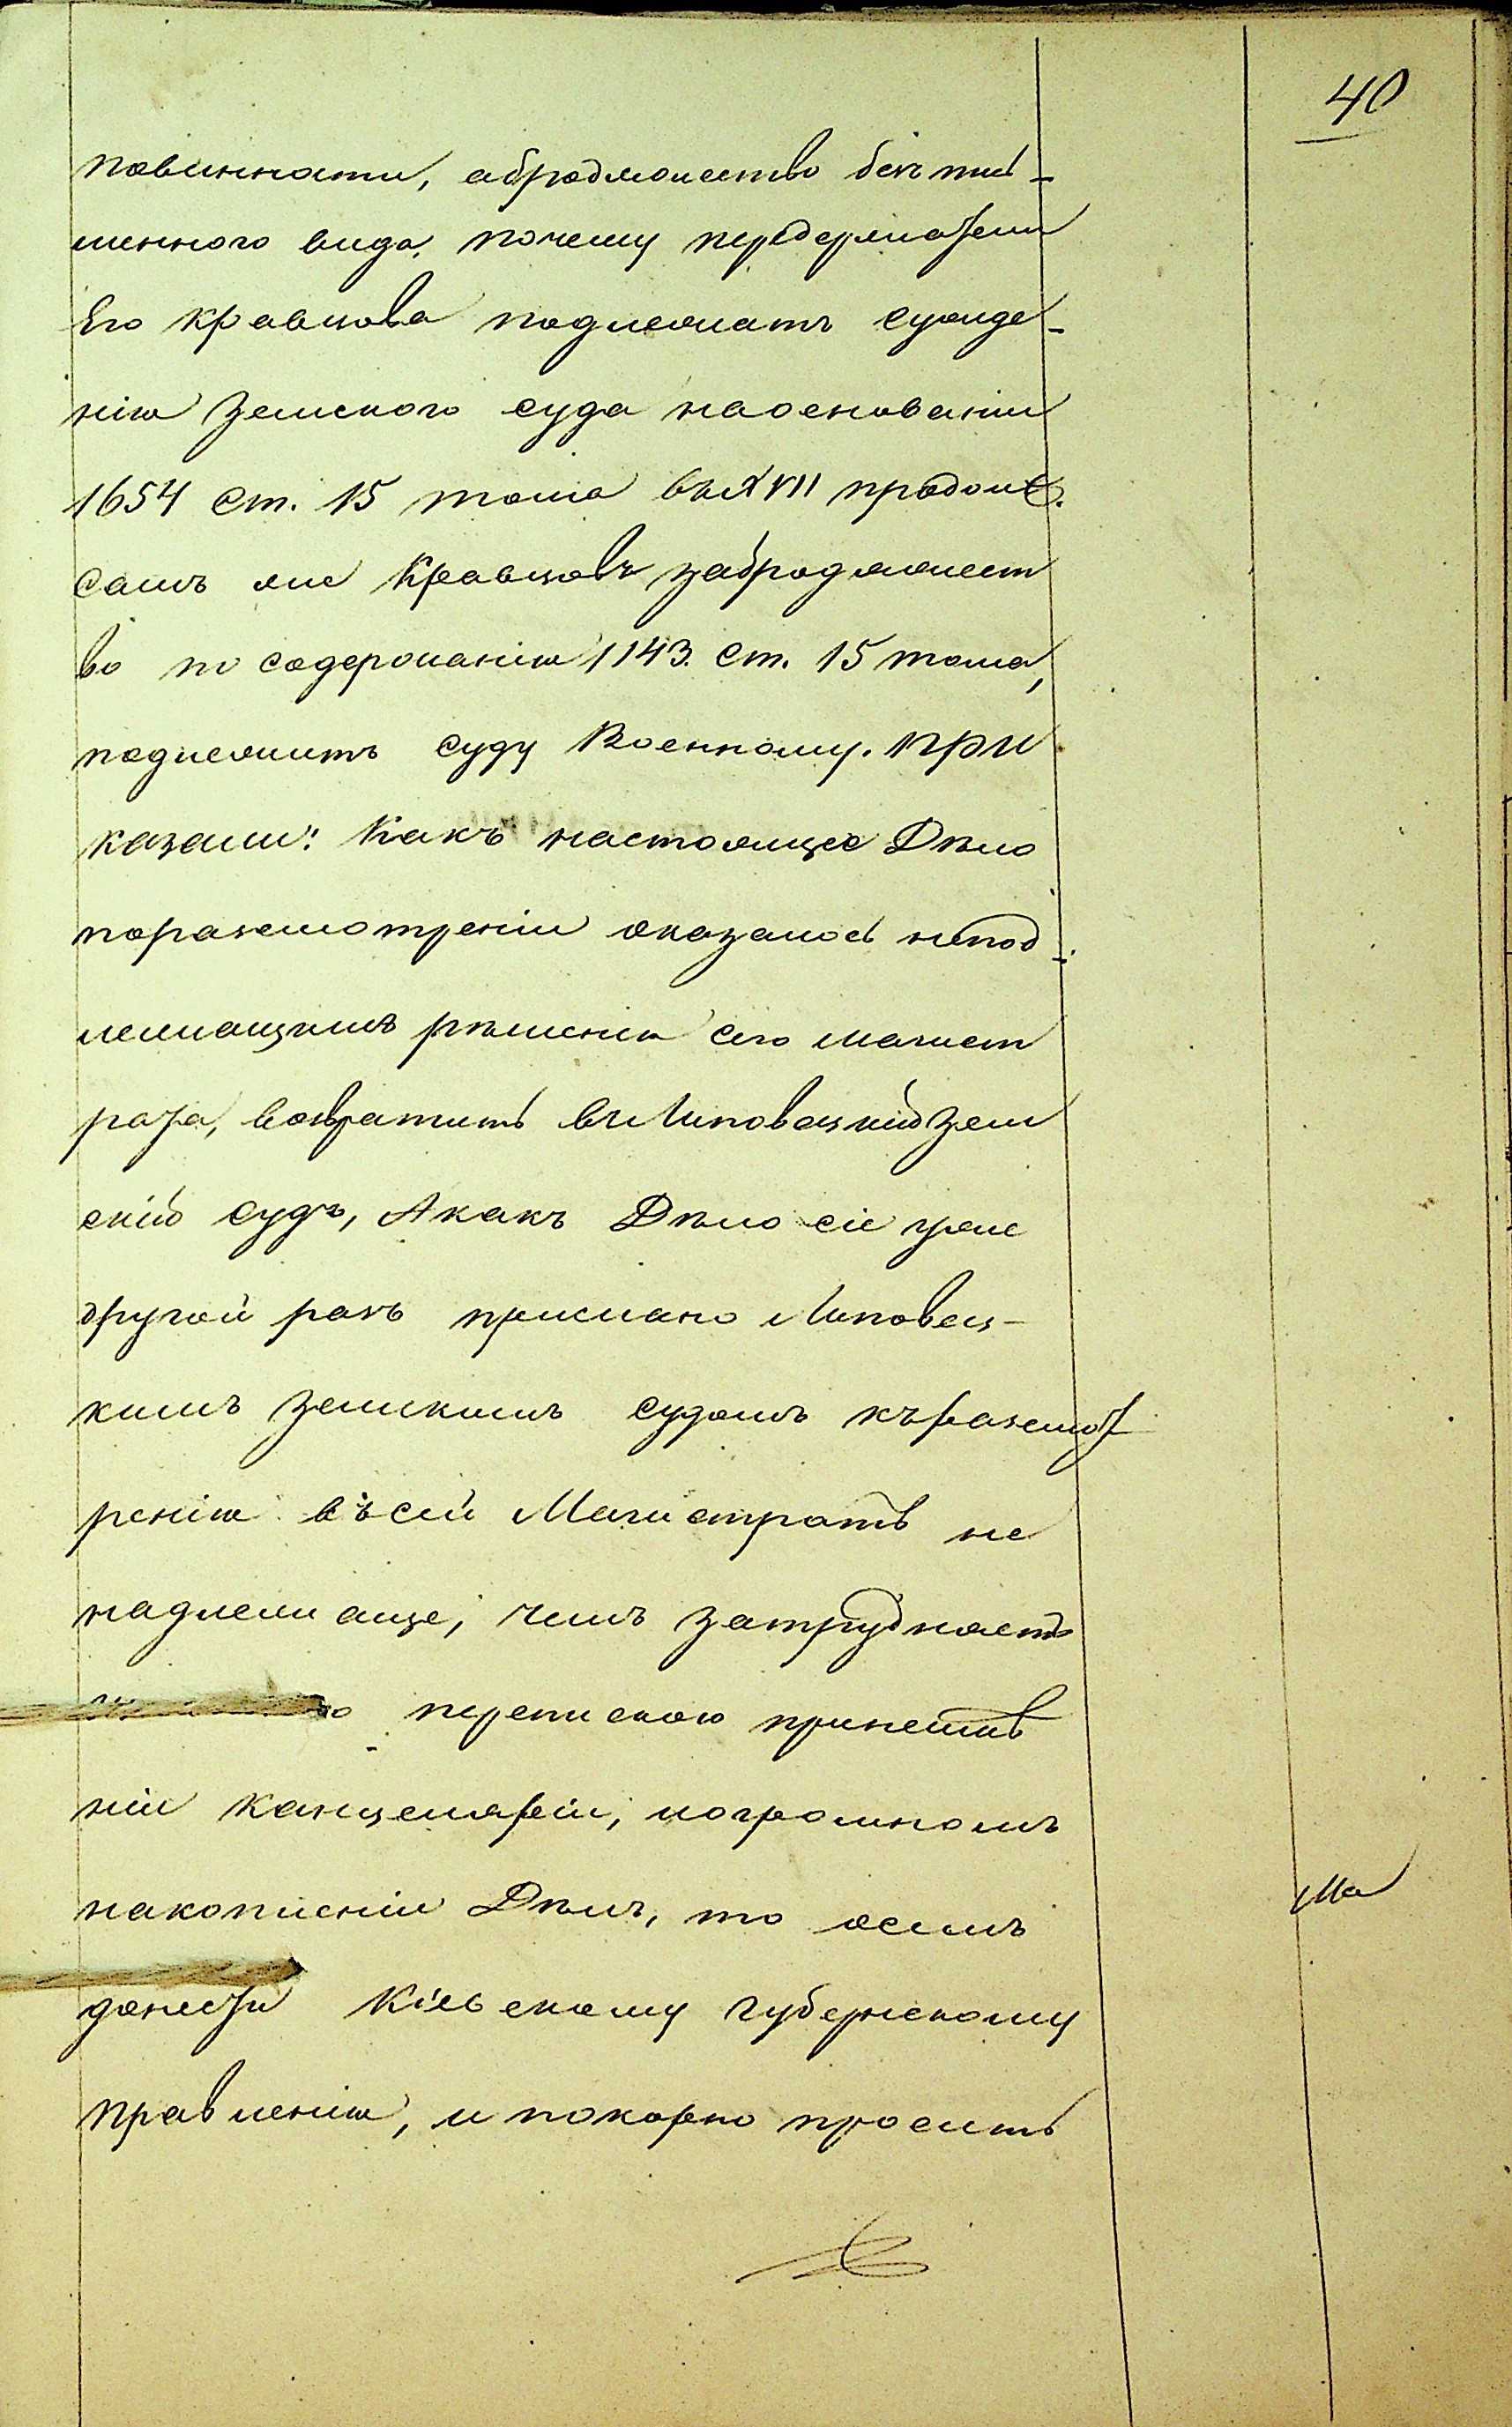 40
повинности, абродяжество безъ пись-
меннаго вида, почему передержатели
Его Кравцова подлежатъ сужде-
нію Земского суда наоснованіи
1654 ст. 15 тома въ XVII продолж.
самъ же Кравцовъ забродяжест
во по содержанію 1143. ст. 15 тома,
подлежитъ суду Военному. При
казали: Какъ настоящее Дѣло
поразсмотреніи оказалось непод-
лежащимъ рѣшенію сего магист
рата, возвратить въ Липовецкій Зем
скій судъ, А какъ Дѣло сіе уже
другой разъ прислано Липовец-
кимъ Земскимъ судомъ къ разсмот
ренію въ сей Магистратъ не
надлежаще, чемъ затрудняетъ
перепискою
ніи Канцеляріи, иогромномъ
накопленіи Дѣлъ, то осемъ
донести Кіевскому Губернскому
Правленію, и покорно просить
Ма